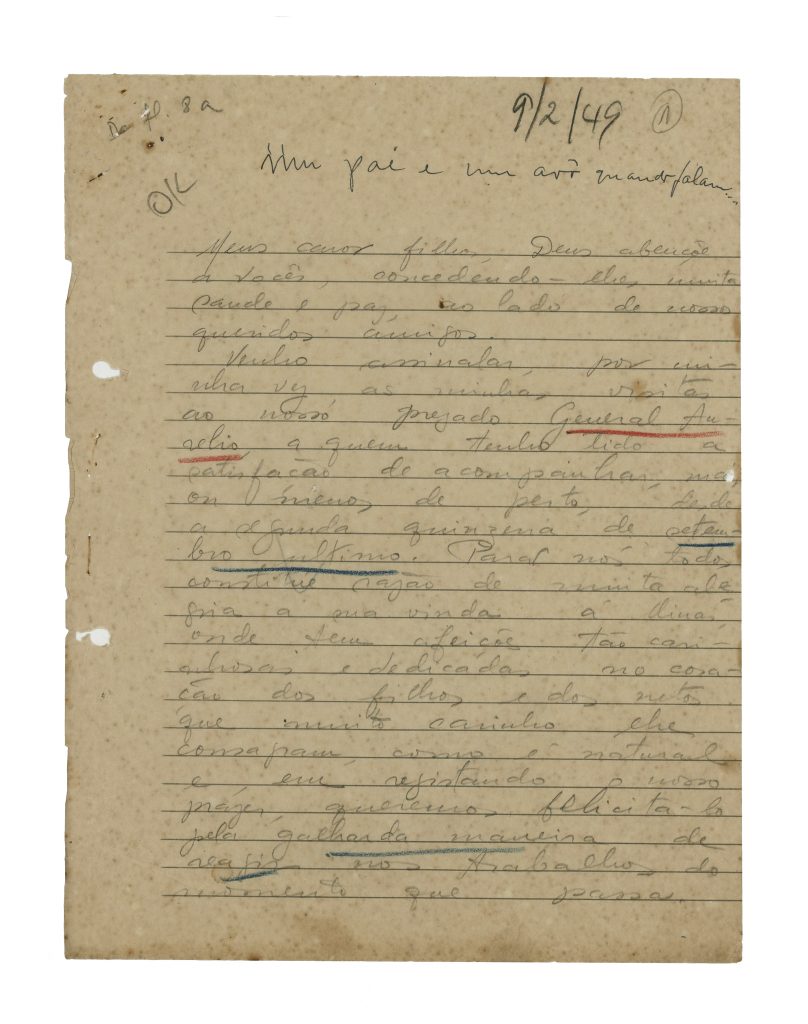 fl. 8a
9/2/49 1
Um pai e um avô quando falam...
OK
Meus caros filhos, Deus abençôe
a vocês, concedendo-lhes muita
saude e paz, ao lado de nosso
queridos amigos.
Venho assinalar, por mi-
nha vez as minhas visitas
ao nosso prezado General Au-
relio, a quem tenho tido a
satisfação de acompanhar, mais
ou menos de perto, desde
a segunda quinzena de setem-
bro ultimo. Para nós todos,
constitue razão de muita ale
gria a sua vinda á Minas,
onde tem afeições tão cari-
nhosas e dedicadas no cora-
ção dos filhos e dos netos
que muito carinho lhe
consagram, como é natural
e, em registando o nosso
prazer, queremos felicita-lo
pela galharda maneira de
reagir nos trabalhos do
momento que passa.